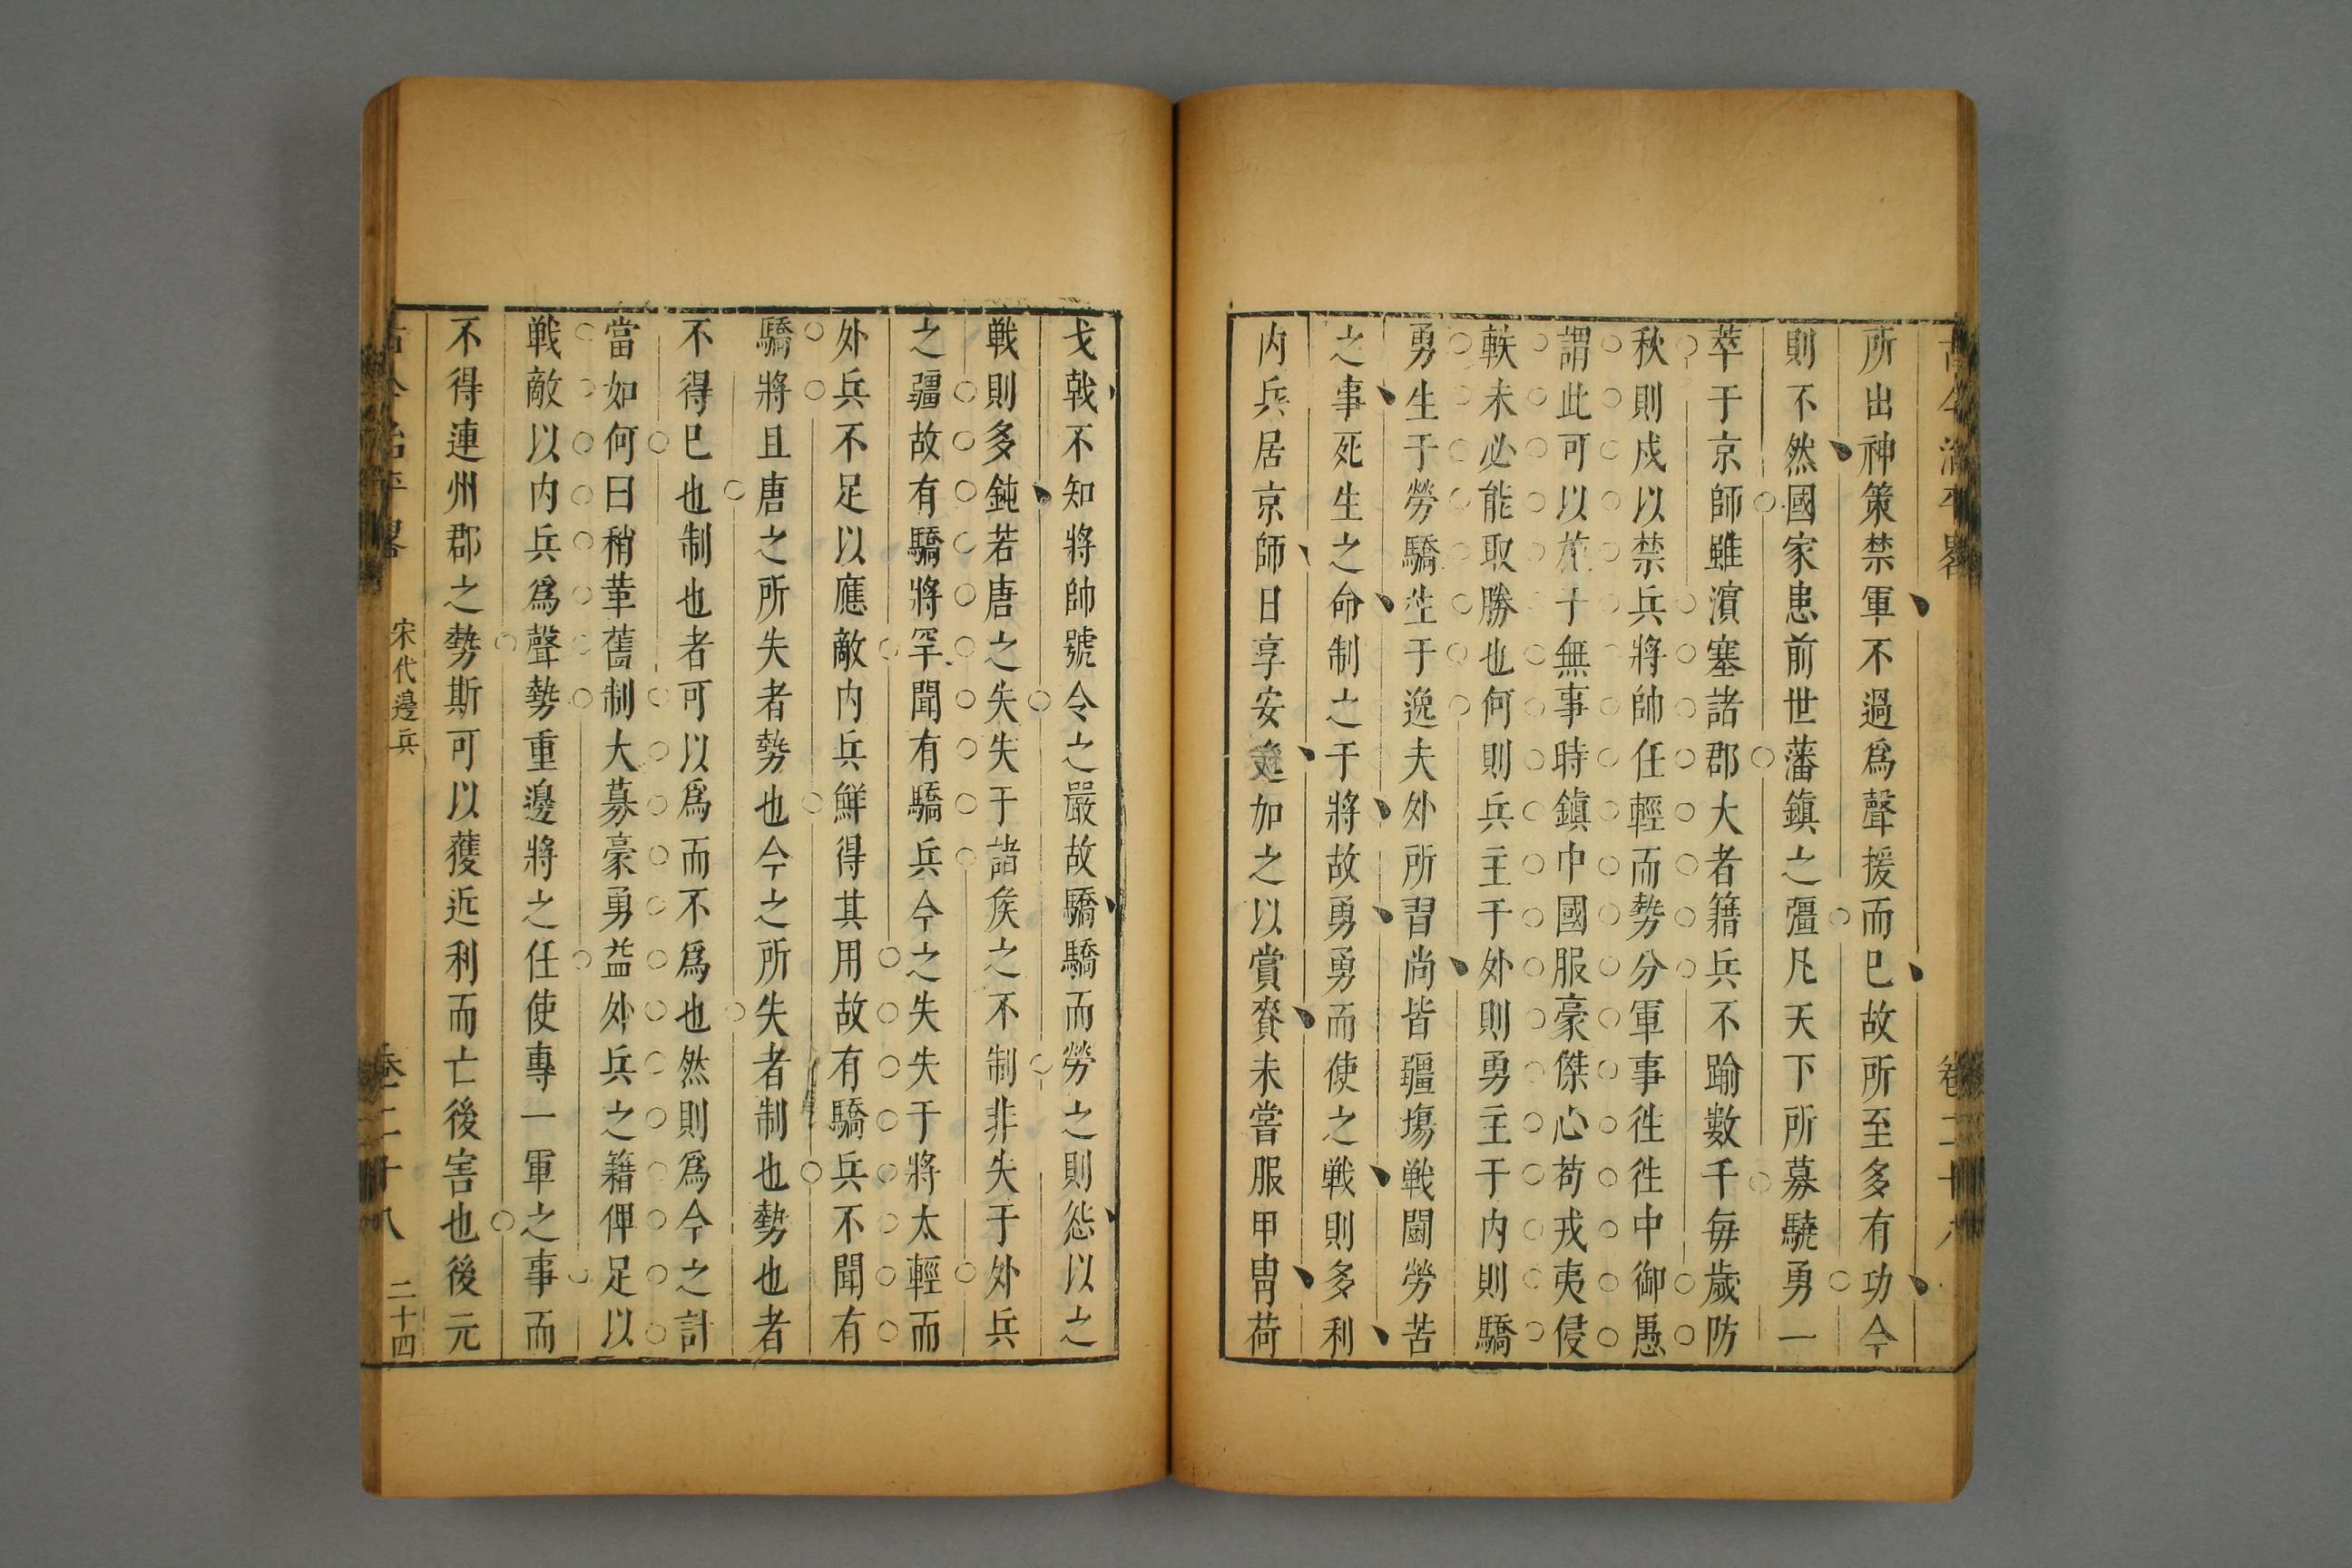 古今治平畧 卷二十八
所出神策禁軍不過爲聲援而已故所至多有功今
則不然國家患前世藩鎮之彊凡天下所募驍勇一
萃于京師雖濵塞諸郡大者籍兵不踰數千每歲防
秋則戍以禁兵將帥任輕而勢分軍事徃徃中御愚
謂此可以施于無事時鎮中國服豪傑心苟戎夷侵
軼未必能取勝也何則兵主于外則勇主于内則驕
勇生于勞驕生于逸夫外所習尚皆疆塲戦鬭勞苦
之事死生之命制之于將故勇勇而使之戦則多利
内兵居京師日享安逸加之以賞賚未嘗服甲冑荷
戈戟不知將帥號令之嚴故驕驕而勞之則怨以之
戦則多鈍若唐之失失于諸矦之不制非失于外兵
之彊故有驕將罕聞有驕兵今之失失于將太輕而
外兵不足以應敵内兵鮮得其用故有驕兵不聞有
驕將且唐之所失者勢也今之所失者制也勢也者
不得已也制也者可以爲而不爲也然則爲今之計
當如何曰稍革舊制大募豪勇益外兵之籍俾足以
戦敵以内兵爲聲勢重邊將之任使專一軍之事而
不得連州郡之勢斯可以獲近利而亡後害也後元
古今治平畧 宋代邊兵 卷二十八 二十四